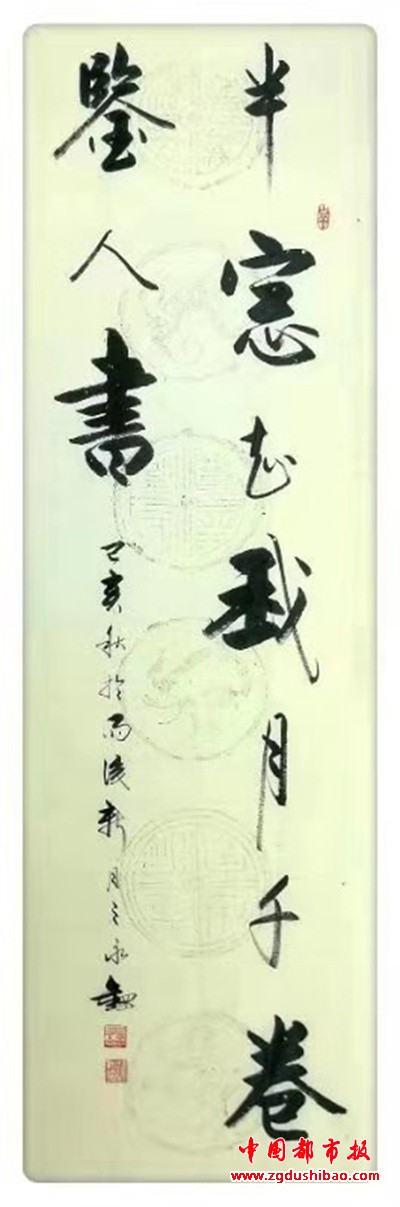 半窓我月千卷
鑒人書
己亥秋於雨後新月之永
中国都市报
www.zgdushibao.com